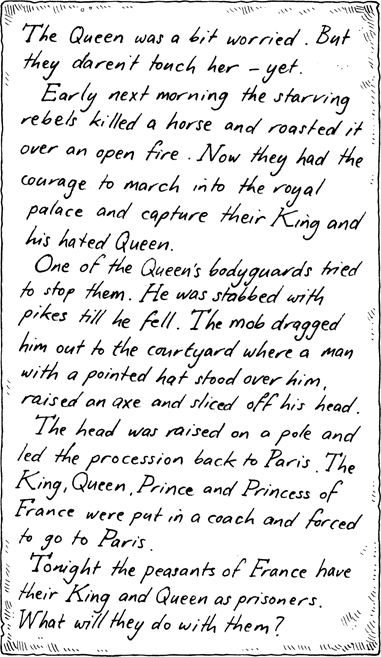 The Queen was a bit worried. But
they daren't touch her – yet.
Early next morning the starving
rebels killed a horse and roasted it
over an open fire. Now they had the
courage to march into the royal
palace and capture their King and
his hated Queen.
One of the Queen's bodyguards tried
to stop them. He was stabbed with
pikes till he fell. The mob dragged
him out to the courtyard where a man
with a pointed hat stood over him,
raised an axe and sliced off his head.
The head was raised on a pole and
led the procession back to Paris. The
King, Queen, Prince and Princess of
France were put in a coach and forced
to go to Paris.
Tonight the peasants of France have
their King and Queen as prisoners.
What will they do with them?